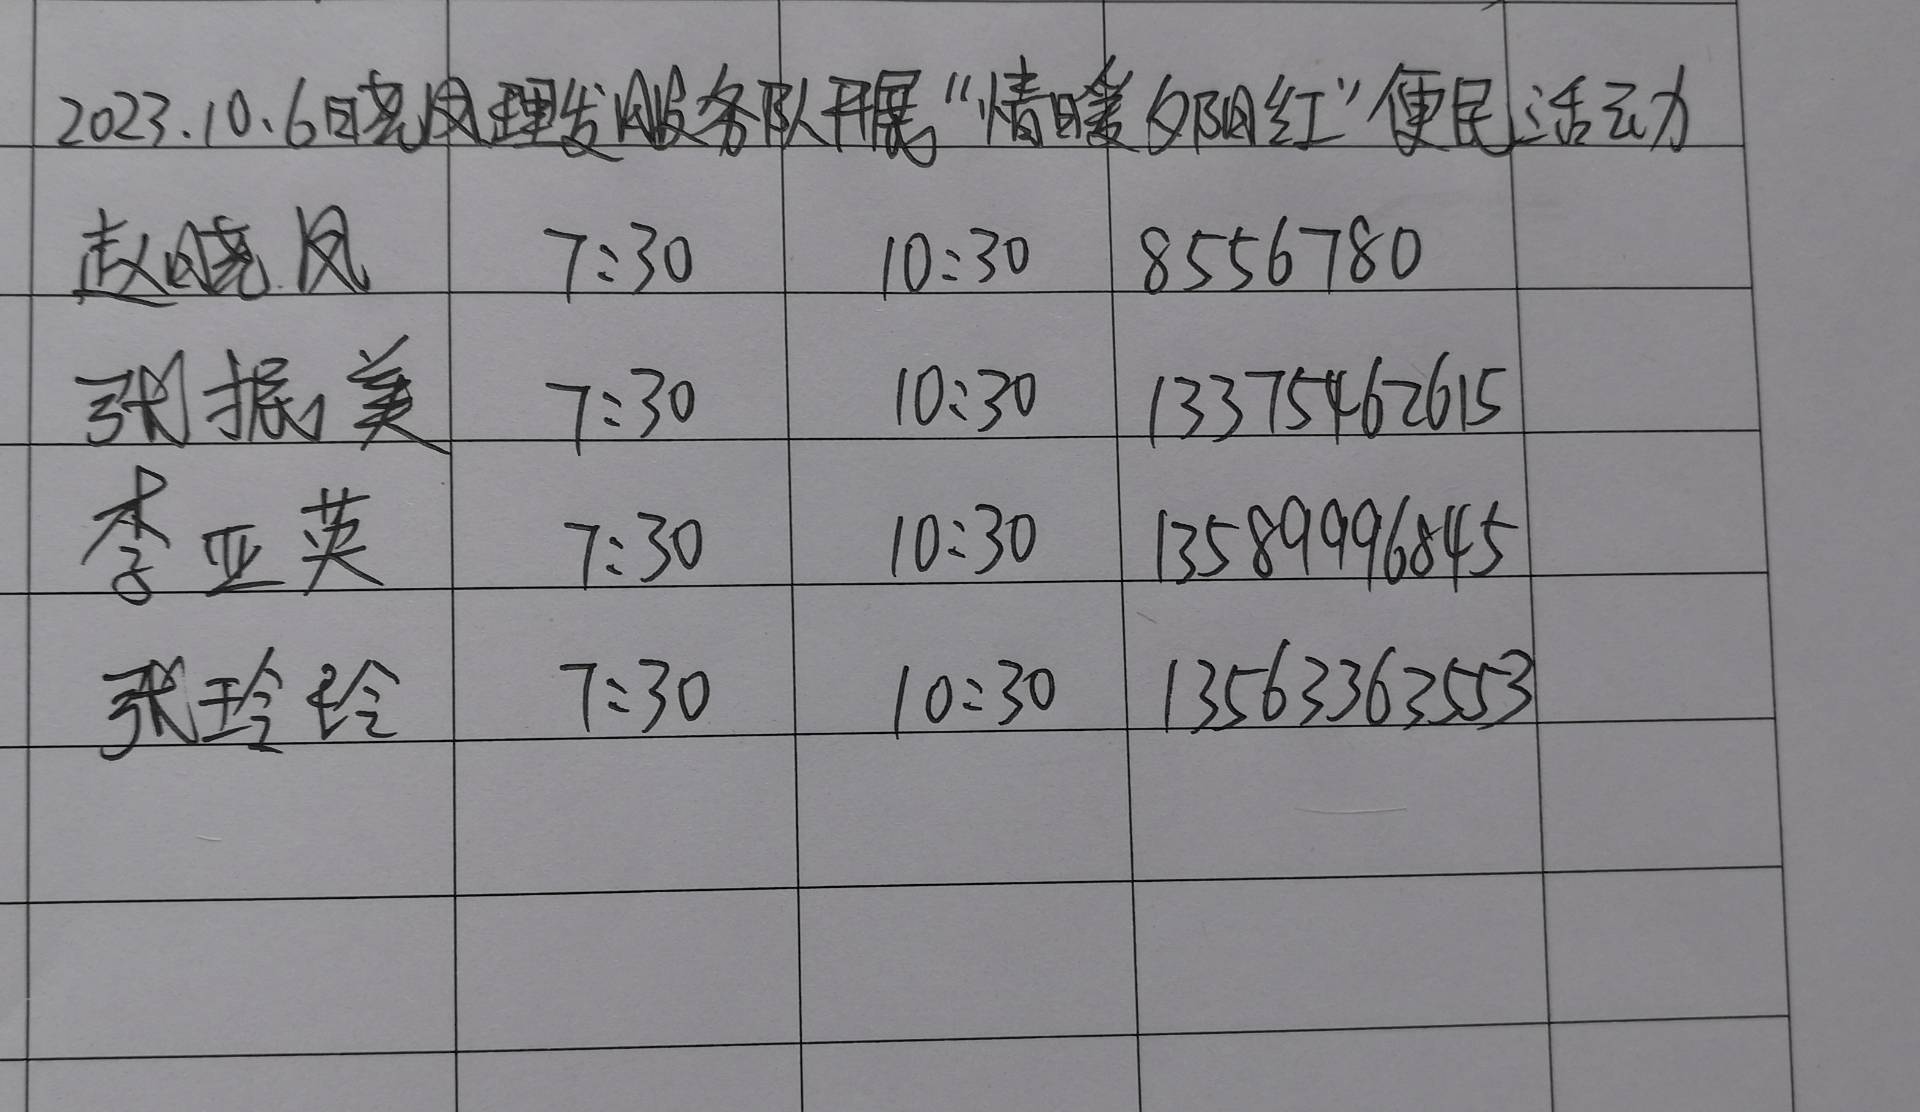 2023.10.6日晓凤理发服务队开展“情暖夕阳红”便民活动
赵晓凤 7:30 10:30 8556780
张振美 7:30 10:30 13375462615
李亚英 7:30 10:30 13589996845
张玲玲 7:30 10:30 13563363553